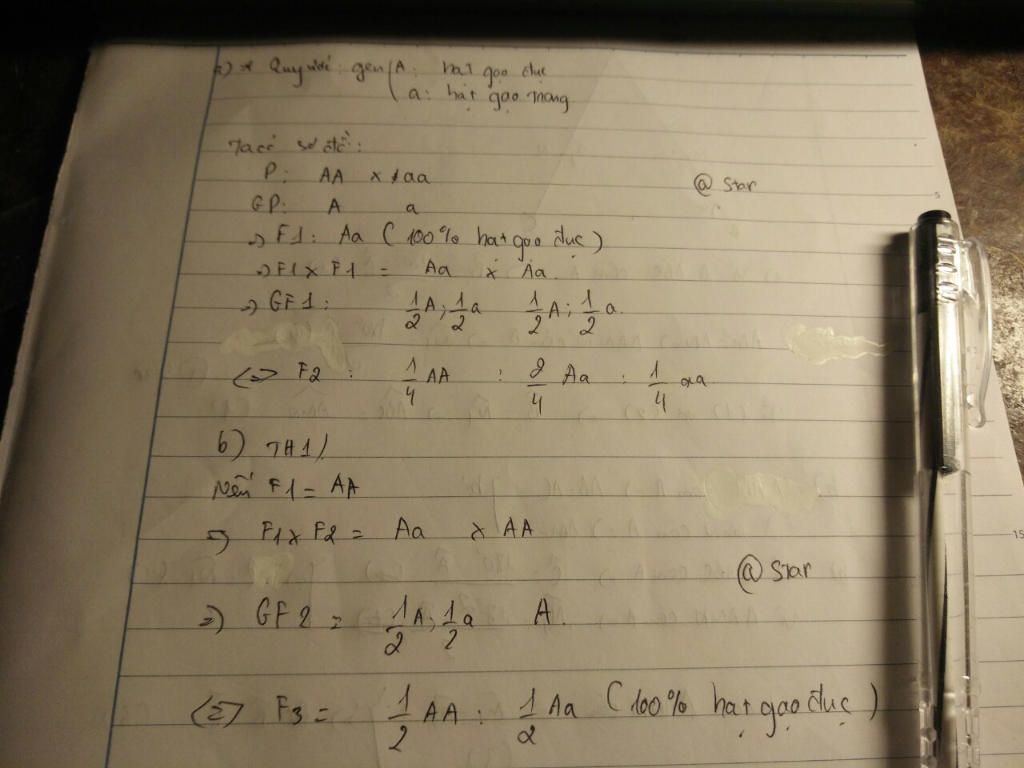 a) * Quy ước: gen { A: hạt gạo đục
a: hạt gạo trong
Ta có sơ đồ:
P: AA x aa
@ Star
GP: A a
=> F1: Aa (100% hạt gạo đục)
=> F1 x F1 = Aa x Aa.
=> GF1: 1/2 A; 1/2 a 1/2 A; 1/2 a.
<=> F2 : 1/4 AA : 2/4 Aa : 1/4 aa
b) TH1)
Nếu F1 = AA
=> F1 x F2 = Aa x AA
@ Star
=> GF2 = 1/2 A; 1/2 a A.
<=> F3 = 1/2 AA : 1/2 Aa (100% hạt gạo đục)
5
15